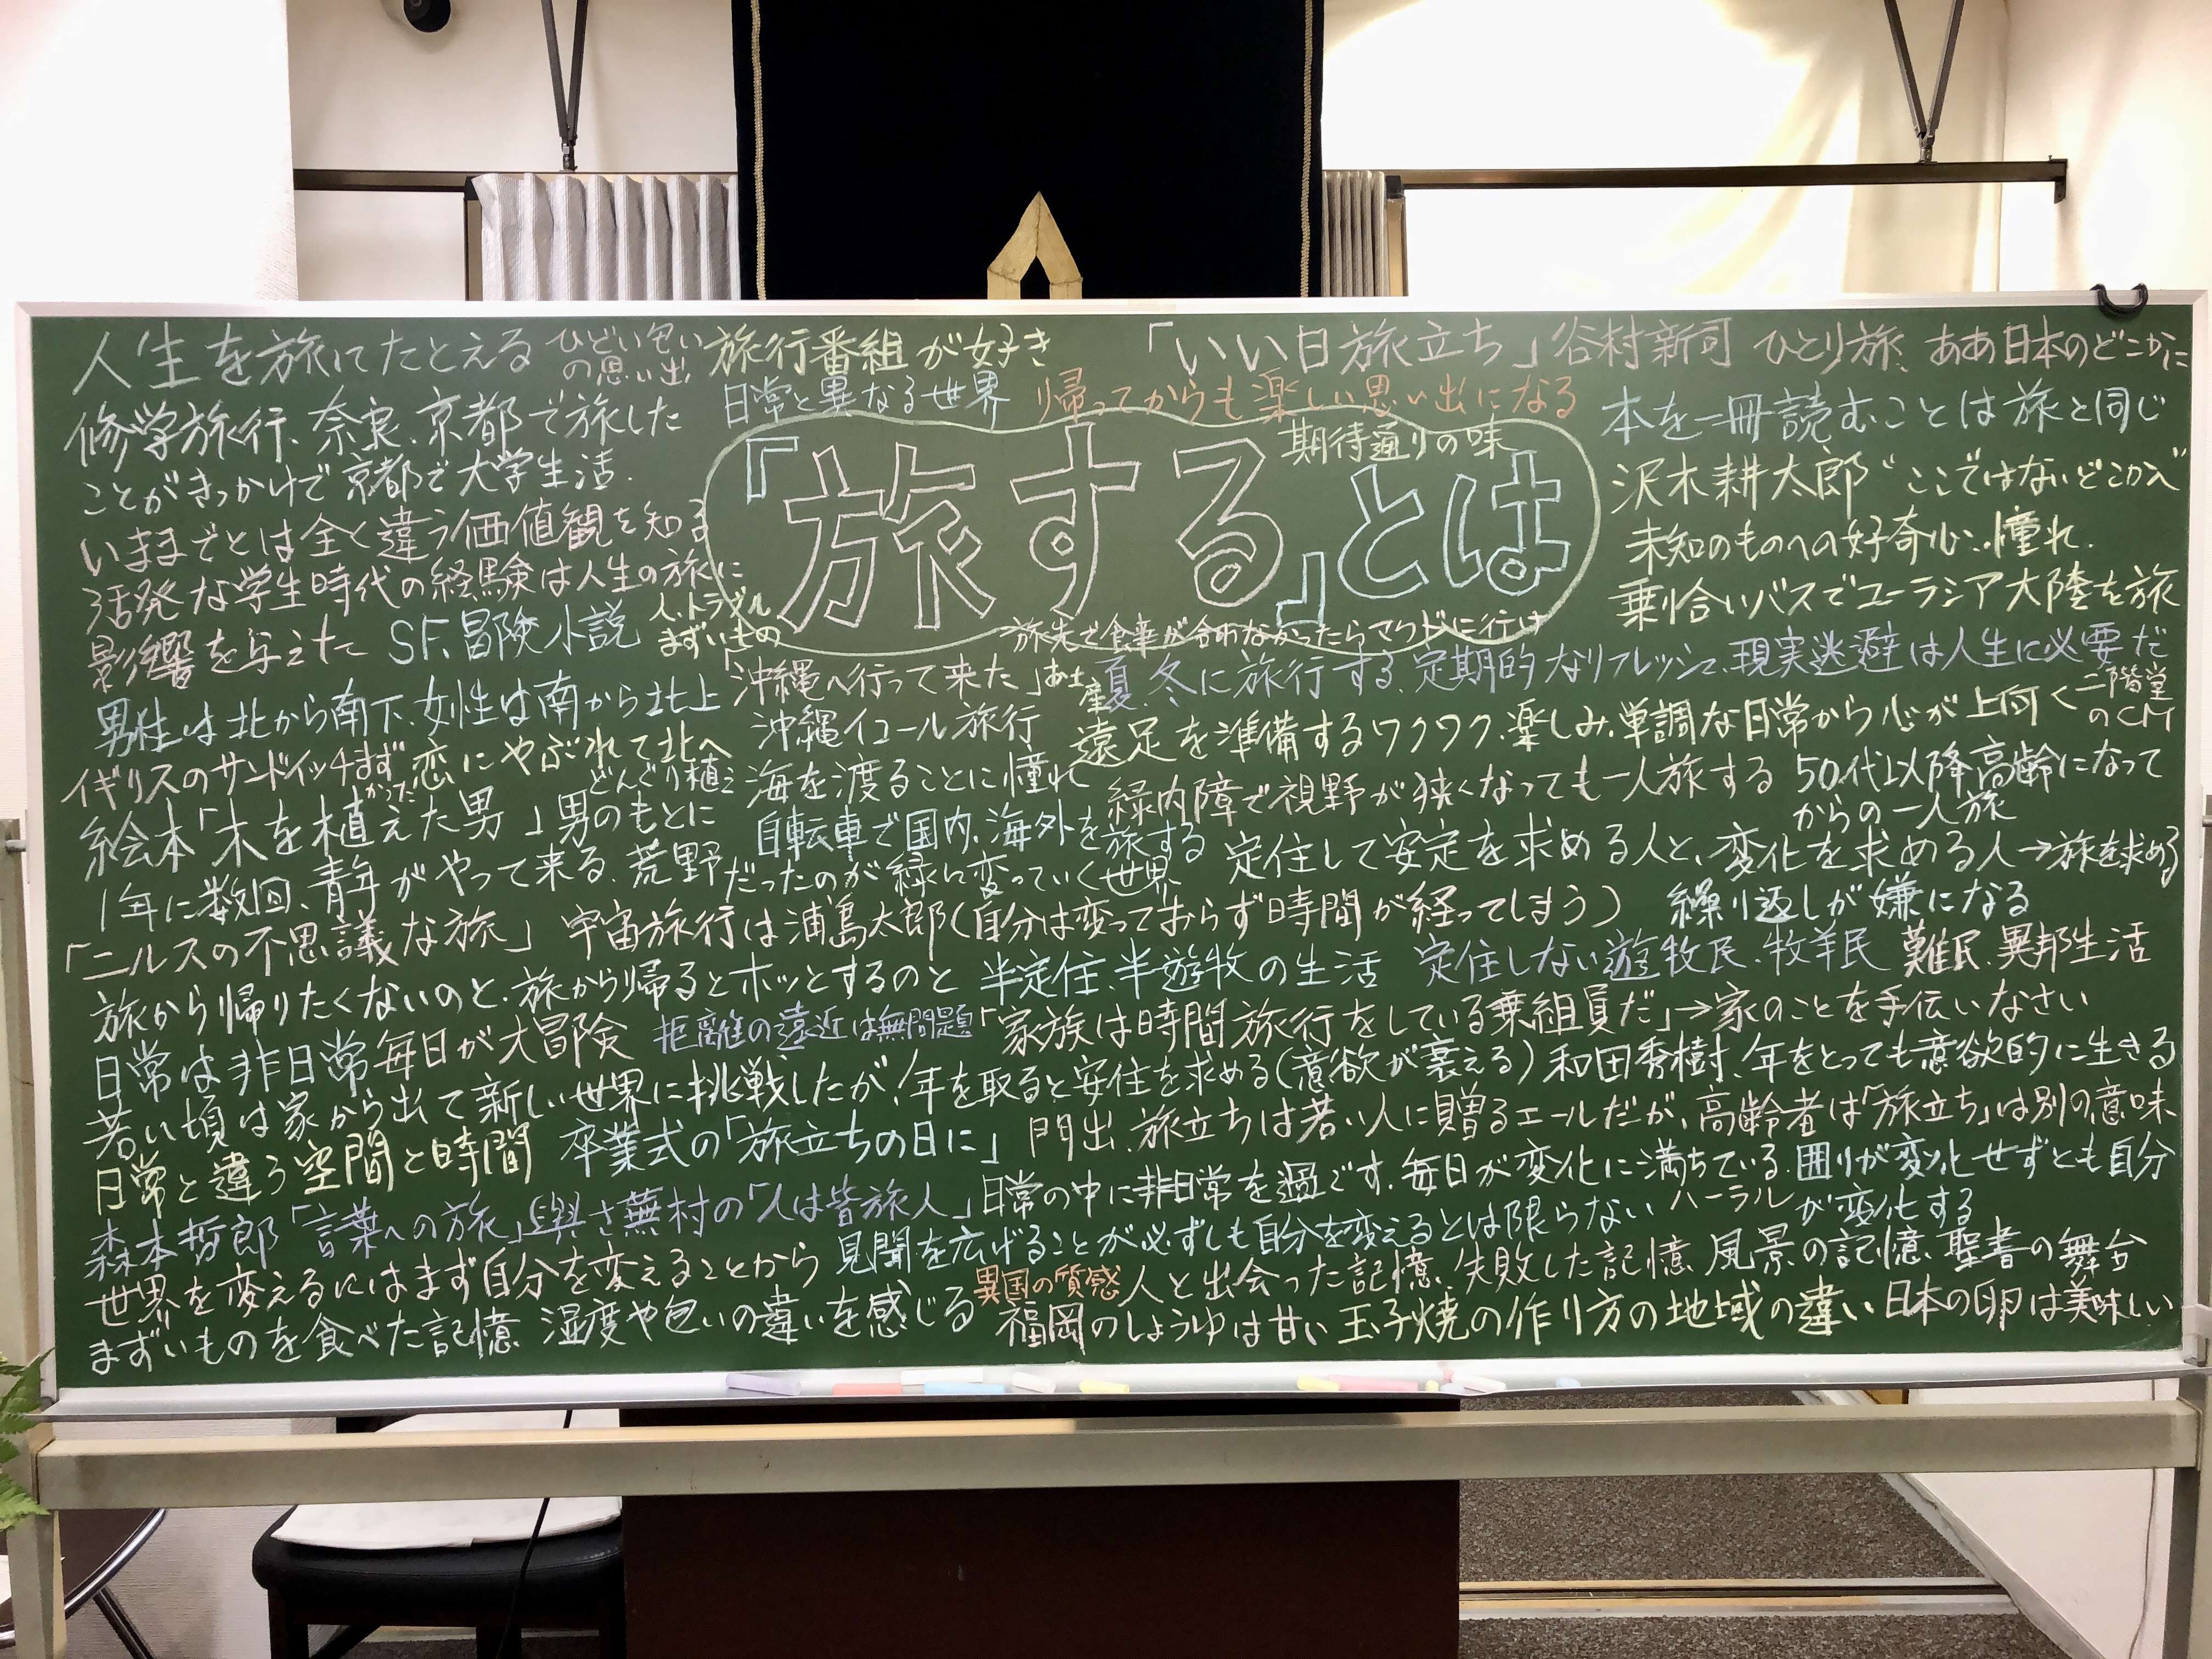 人生を旅にたとえる
ひどい匂い
の思い出
旅行番組が好き
「いい日旅立ち」谷村新司 ひとり旅、ああ日本のどこかに
日常と異なる世界
帰ってからも楽しい思い出になる
修学旅行、奈良、京都で旅した
ことがきっかけで京都で大学生活.
いままでとは全く違う価値観を知る
活発な学生時代の経験は人生の旅に
影響を与えた
SF、冒険小説
人、トラブル
まずいもの
期待通りの味
「旅する」とは
旅先で食事が合わなかったらマクドに行け
本を一冊読むことは旅と同じ
沢木耕太郎“ここではないどこかへ”
未知のものへの好奇心、憧れ.
乗り合いバスでユーラシア大陸を旅
男性は北から南下、女性は南から北上
「沖縄へ行って来た」お土産
夏、冬に旅行する、定期的なリフレッシュ、現実逃避は人生に必要だ
イギリスのサンドイッチまずかった
恋にやぶれて北へ
沖縄イコール旅行
遠足を準備するワクワク、楽しみ、単調な日常から心が上向く
二階堂
のCM
絵本「木を植えた男」男のもとに
どんぐり植え
海を渡ることに憧れ
緑内障で視野が狭くなっても一人旅する
50代以降高齢になって
からの一人旅
1年に数回、青年がやって来る、荒野だったのが緑に変っていく世界
自転車で国内、海外を旅する
定住して安定を求める人と、変化を求める人→旅を求める
「ニルスの不思議な旅」
宇宙旅行は浦島太郎(自分は変っておらず時間が経ってしまう)
繰り返しが嫌になる
旅から帰りたくないのと、旅から帰るとホッとするのと
半定住、半遊牧の生活
定住しない遊牧民、牧羊民
難民、異邦生活
日常は非日常
毎日が大冒険
距離の遠近は無問題
「家族は時間旅行をしている乗組員だ」→家のことを手伝いなさい
若い頃は家から出て新しい世界に挑戦したが、年を取ると安住を求める(意欲が衰える)
和田秀樹、年をとっても意欲的に生きる
日常と違う空間と時間
卒業式の「旅立ちの日に」
門出、旅立ちは若い人に贈るエールだが、高齢者は「旅立ち」は別の意味
森本哲郎「言葉への旅」与謝蕪村の「人は皆旅人」
日常の中に非日常を過ごす、毎日が変化に満ちている
囲りが変化せずとも自分
が変化する
世界を変えるにはまず自分を変えることから
見聞を広げることが必ずしも自分を変えるとは限らない
異国の質感
人と出会った記憶、失敗した記憶
風景の記憶
の舞台
まずいものを食べた記憶
湿度や匂いの違いを感じる
福岡のしょうゆは甘い
玉子焼の作り方の地域の違い
日本の卵は美味しい